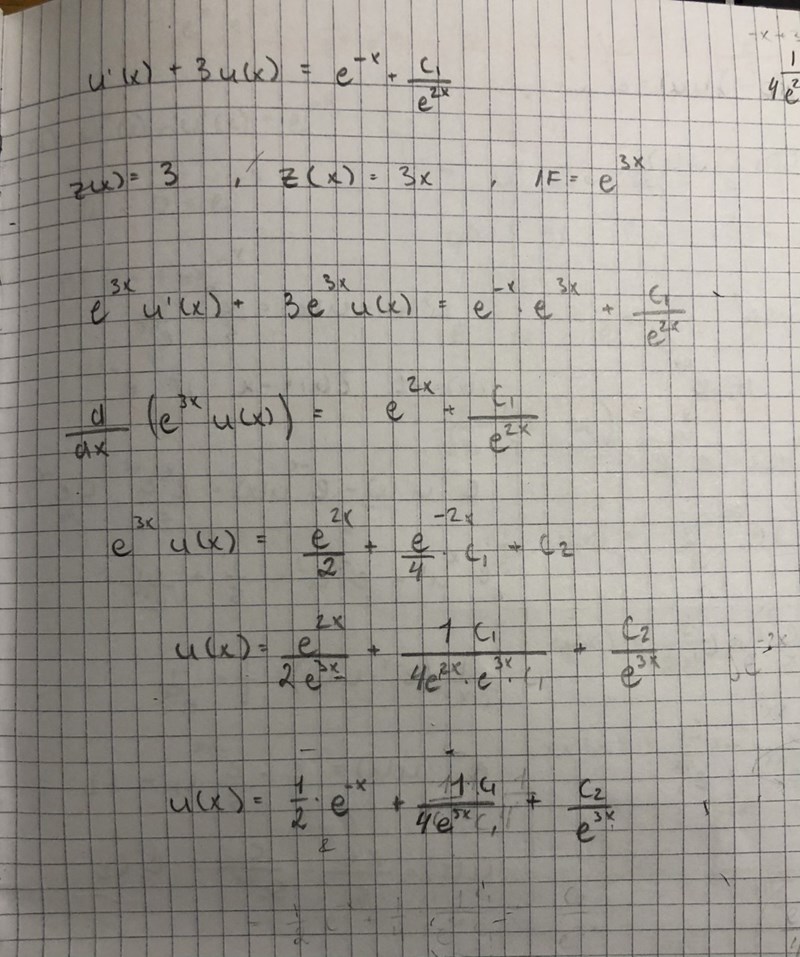 u'(x) + 3u(x) = e^{-x} + \frac{C_1}{e^{2x}}
z(x) = 3 , z(x) = 3x , IF = e^{3x}
e^{3x} u'(x) + 3e^{3x} u(x) = e^{-x} · e^{3x} + \frac{C_1}{e^{2x}}
\frac{d}{dx} (e^{3x} u(x)) = e^{2x} + \frac{C_1}{e^{2x}}
e^{3x} u(x) = \frac{e^{2x}}{2} + \frac{e^{-2x}}{4} · C_1 + C_2
u(x) = \frac{e^{2x}}{2e^{3x}} + \frac{1 C_1}{4e^{2x} · e^{3x} ·} + \frac{C_2}{e^{3x}}
u(x) = \frac{1}{2} · e^{-x} + \frac{1 C_1}{4e^{5x}} + \frac{C_2}{e^{3x}}